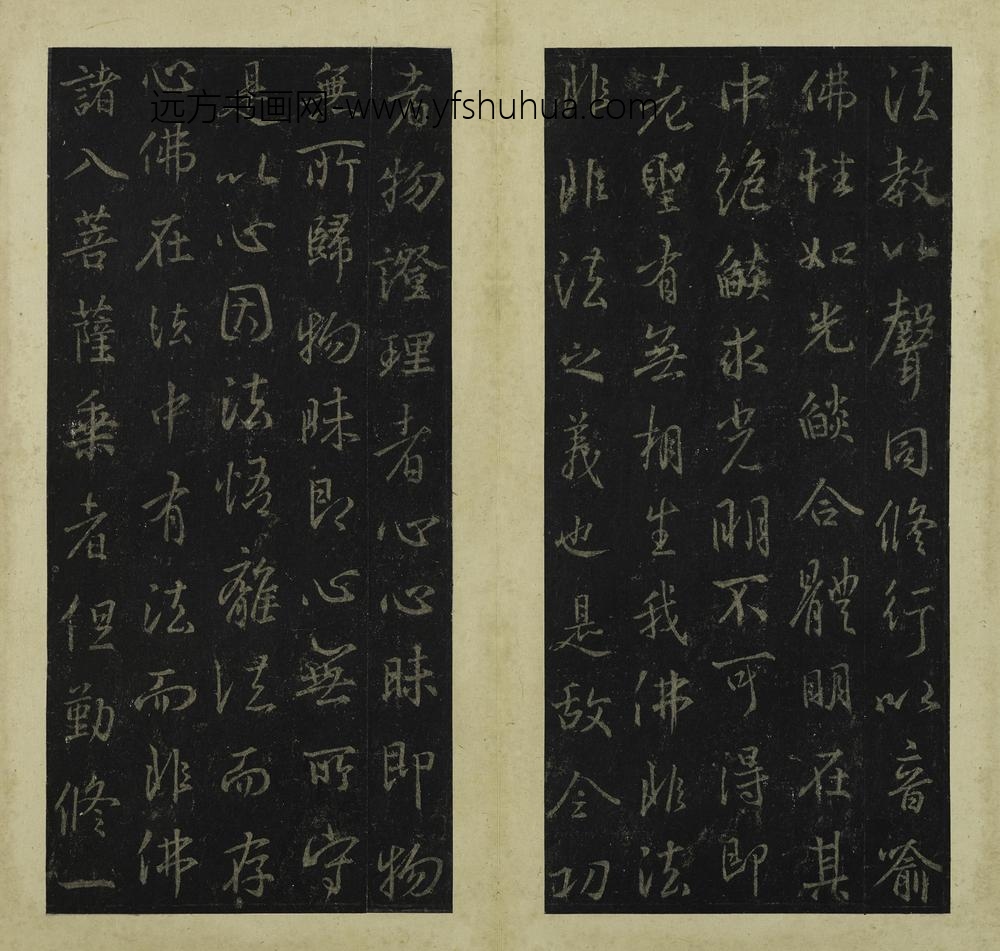 远方书画网-www.yfshuhua.com
法教以聲同脩行以音喻
佛性如光燄合體明在其
中絶燄求光明不可得即
老聖有無相生我佛非法
非非法之義也是故令切
者物證理者心心昧即物
無所歸物昧即心無所守
是以心因法悟離法而存
心佛在法中有法而非佛
諸入菩薩乘者但勤脩一